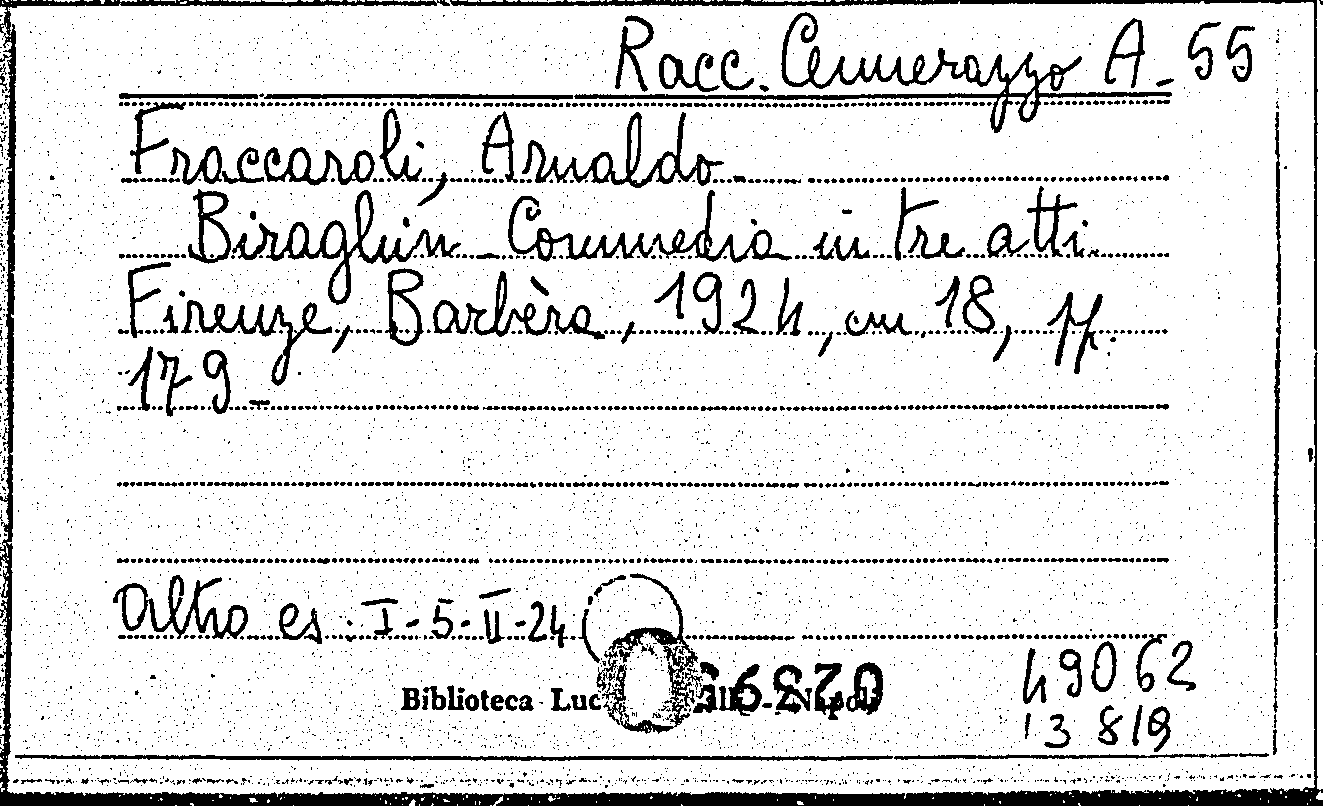 Racc. Cennerazzo A-55
Fraccaroli, Arnaldo-
Biraghin - Commedia in tre atti.
Firenze, Barbèra, 1924, cm. 18, pp.
179-
Altro es. I-5-II-24
Biblioteca Napoli
49062
13819